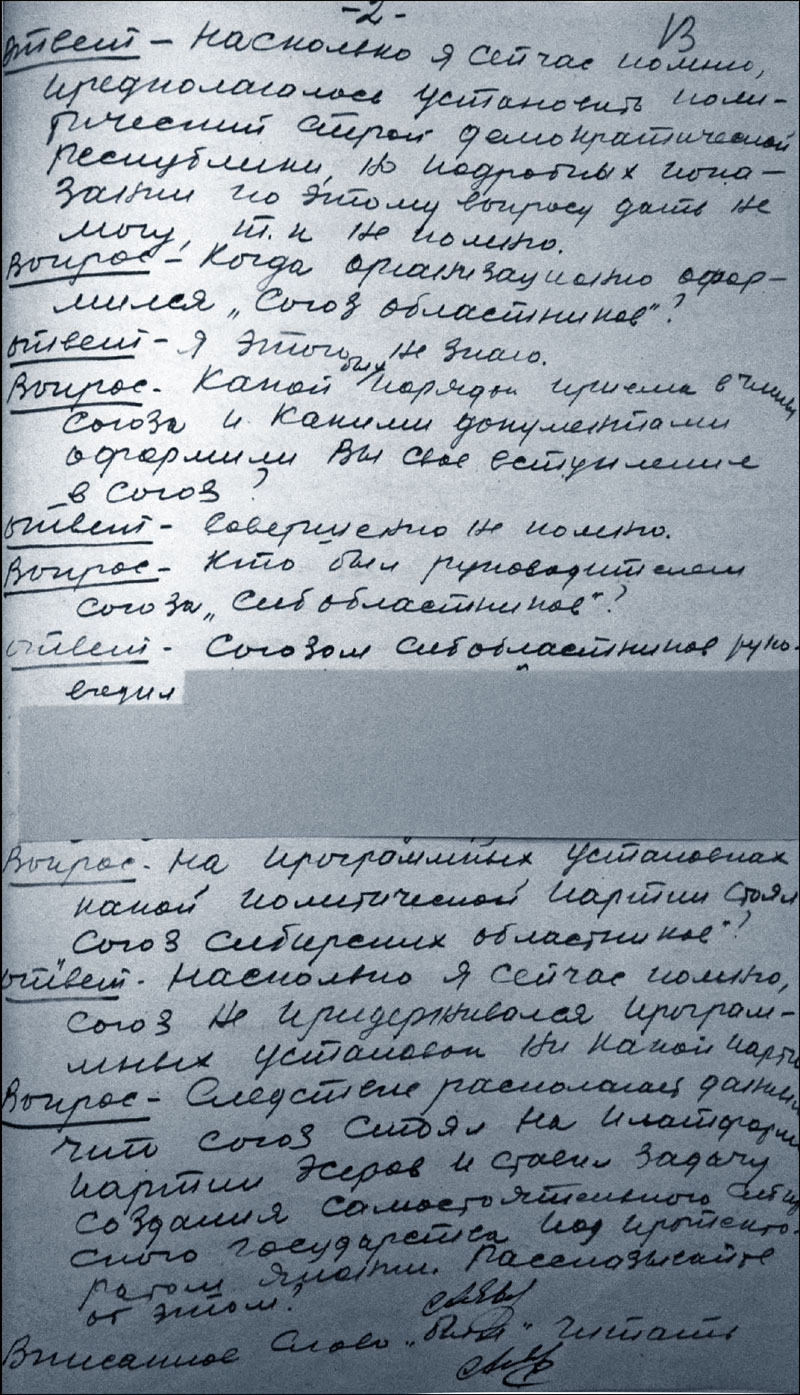 -2-
Ответ - Насколько я сейчас помню,
предполагалось установить поли-
тический строй демократической
республики, но подробных пока-
зании по этому вопросу дать не
могу, т.к не помню.
Вопрос - Когда организационно офор-
мился „Союз областников"?
Ответ - Я этого не знаю.
Вопрос - Какой был порядок приема в члены
союза и какими документами
оформили Вы свое вступление
в союз?
Ответ - Совершенно не помню.
Вопрос - Кто был руководителем
союза „Сибобластников"?
Ответ - Союзом сибобластников руко-
водил
Вопрос - На программных установках
какой политической партии стоял
„Союз Сибирских областников"?
Ответ - Насколько я сейчас помню,
союз не придерживался програм-
мных установок ни какой парти
Вопрос - Следствие располагает данными
что союз стоял на платформе
партии эсеров и ставил задачу
создания самостоятельного сибир
ского государства под протекто-
ратом Японии. Рассказывайте
об этом?
Вписанное слово „был" читать